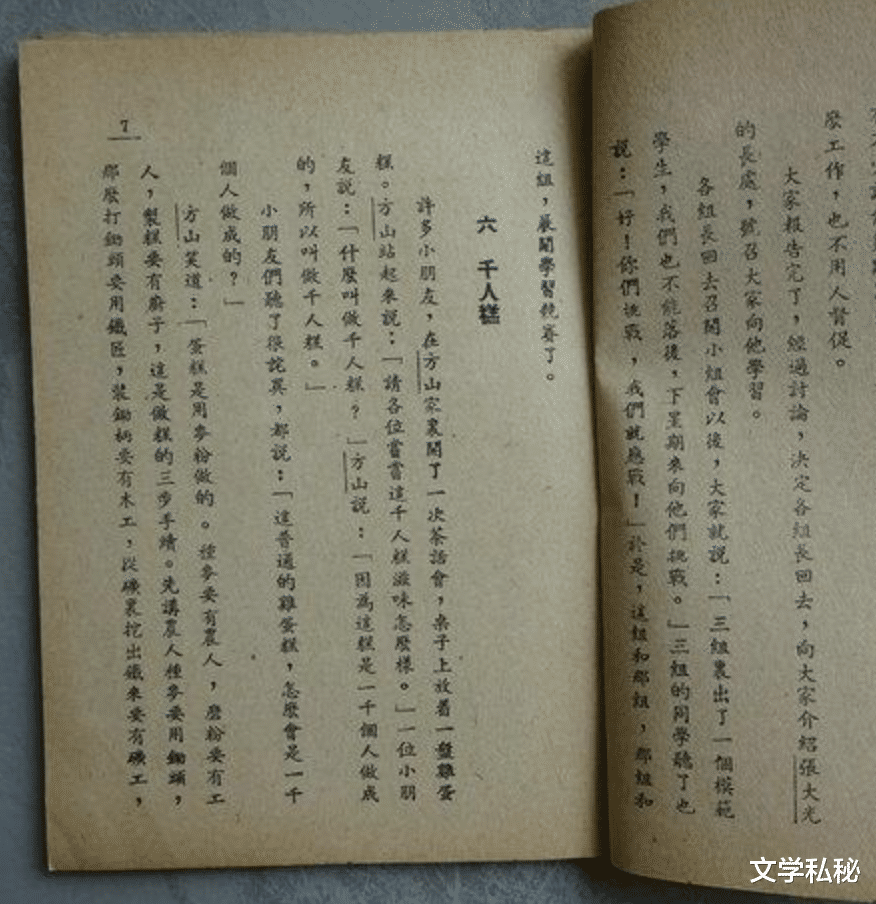 麼工作，也不用人督促。
大家報告完了，經過討論，決定各組長回去，向大家介紹張大光
的長處，號召大家向他學習。
各組長回去召開小組會以後，大家就說：「三組裏出了一個模範
學生，我們也不能落後，下星期來向他們挑戰。」三組的同學聽了也
說：「好！你們挑戰，我們就應戰！」於是，這組和那組，那組和
這組，展開學習競賽了。
六 千人糕
許多小朋友，在方山家裏開了一次茶話會，桌子上放着一盤雞蛋
糕。方山站起來說：「請各位嘗嘗這千人糕滋味怎麼樣。」一位小朋
友說：「什麼叫做千人糕？」方山說：「因為這糕是一千個人做成
的，所以叫做千人糕。」
小朋友們聽了很詫異，都說：「這普通的雞蛋糕，怎麼會是一千
個人做成的？」
方山笑道：「蛋糕是用麥粉做的。種麥要有農人，磨粉要有工
人，製糕要有廚子，這是做糕的三步手續。先講農人種麥要用鋤頭，
那麼打鋤頭要用鐵匠，裝鋤柄要有木工，從礦裏挖出鐵來要有礦工，
7
文学私秘